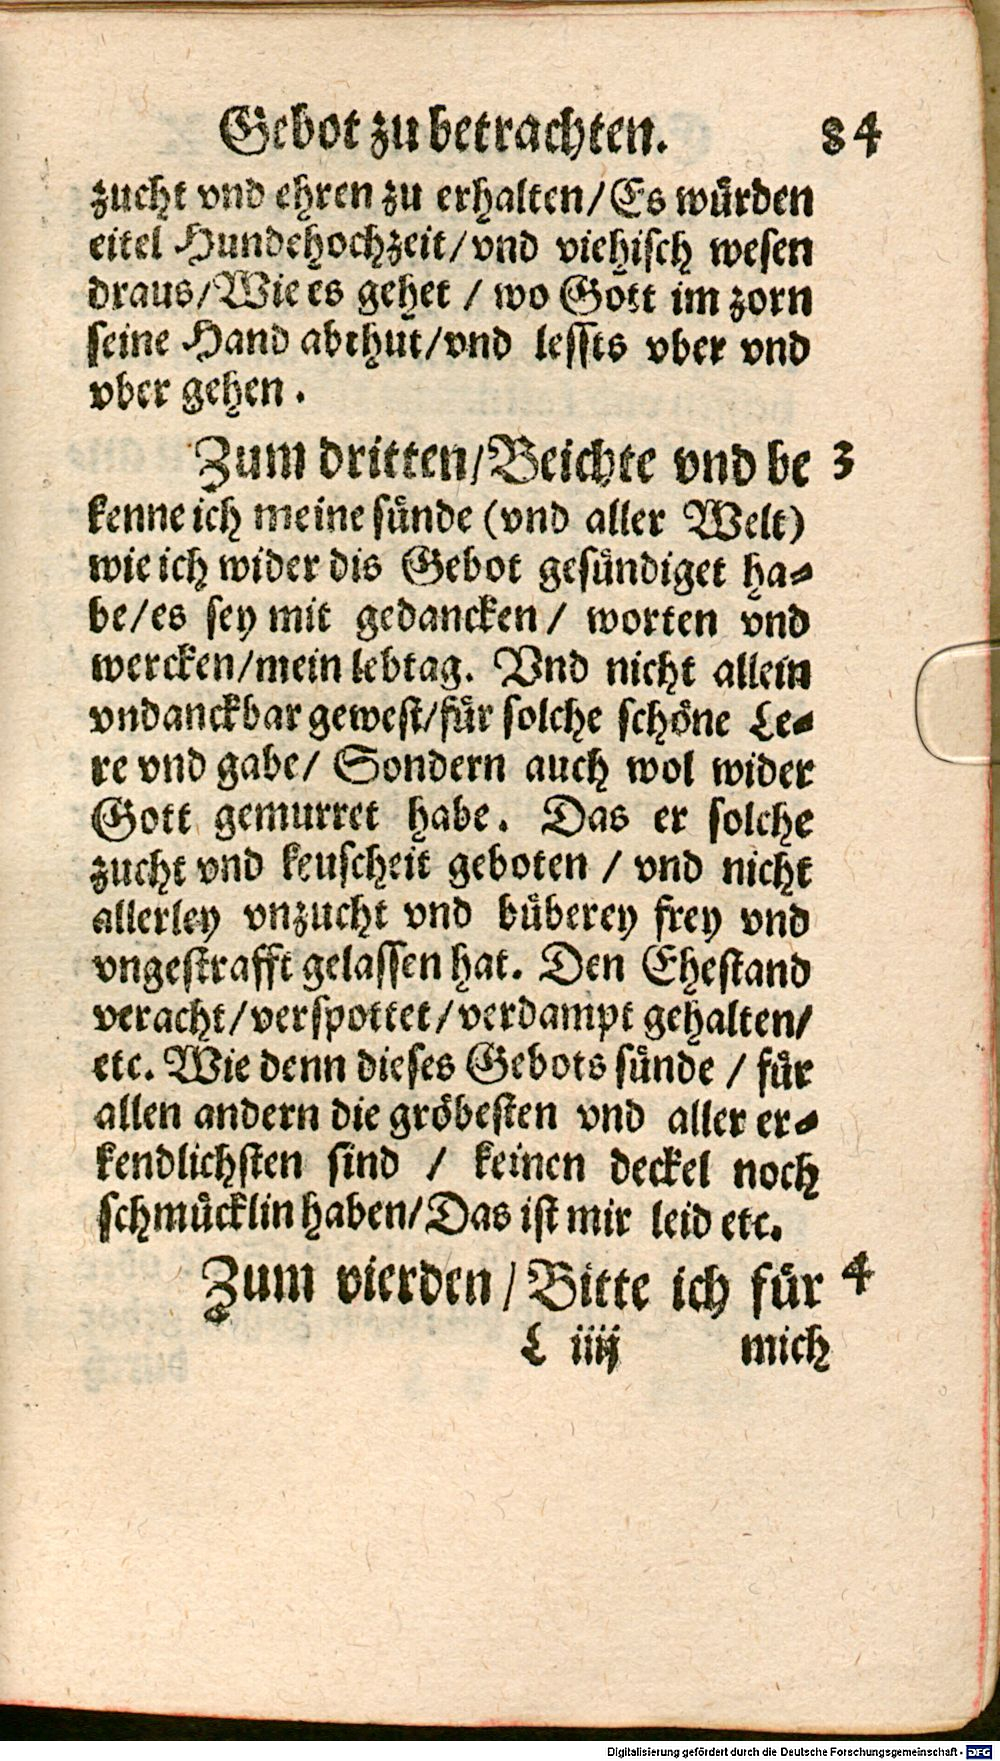 Gebot zu betrachten. 84
zucht vnd ehren zu erhalten/Es würden
eitel Hundehochzeit/vnd viehisch wesen
draus/Wie es gehet / wo Gott im zorn
seine Hand abthut/vnd lessts vber vnd
vber gehen.
Zum dritten/Beichte vnd be 3
kenne ich meine sünde (vnd aller Welt)
wie ich wider dis Gebot gesündiget ha-
be/es sey mit gedancken / worten vnd
wercken/mein lebtag. Vnd nicht allein
vndanckbar gewest/für solche schöne Le-
re vnd gabe/ Sondern auch wol wider
Gott gemurret habe. Das er solche
zucht vnd keuscheit geboten / vnd nicht
allerley vnzucht vnd büberey frey vnd
vngestrafft gelassen hat. Den Ehestand
veracht/verspottet/verdampt gehalten/
etc. Wie denn dieses Gebots sünde / für
allen andern die gröbesten vnd aller er-
kendlichsten sind / keinen deckel noch
schmücklin haben/Das ist mir leid etc.
Zum vierden / Bitte ich für 4
L iiij mich
Digitalisierung gefördert durch die Deutsche Forschungsgemeinschaft - DFG